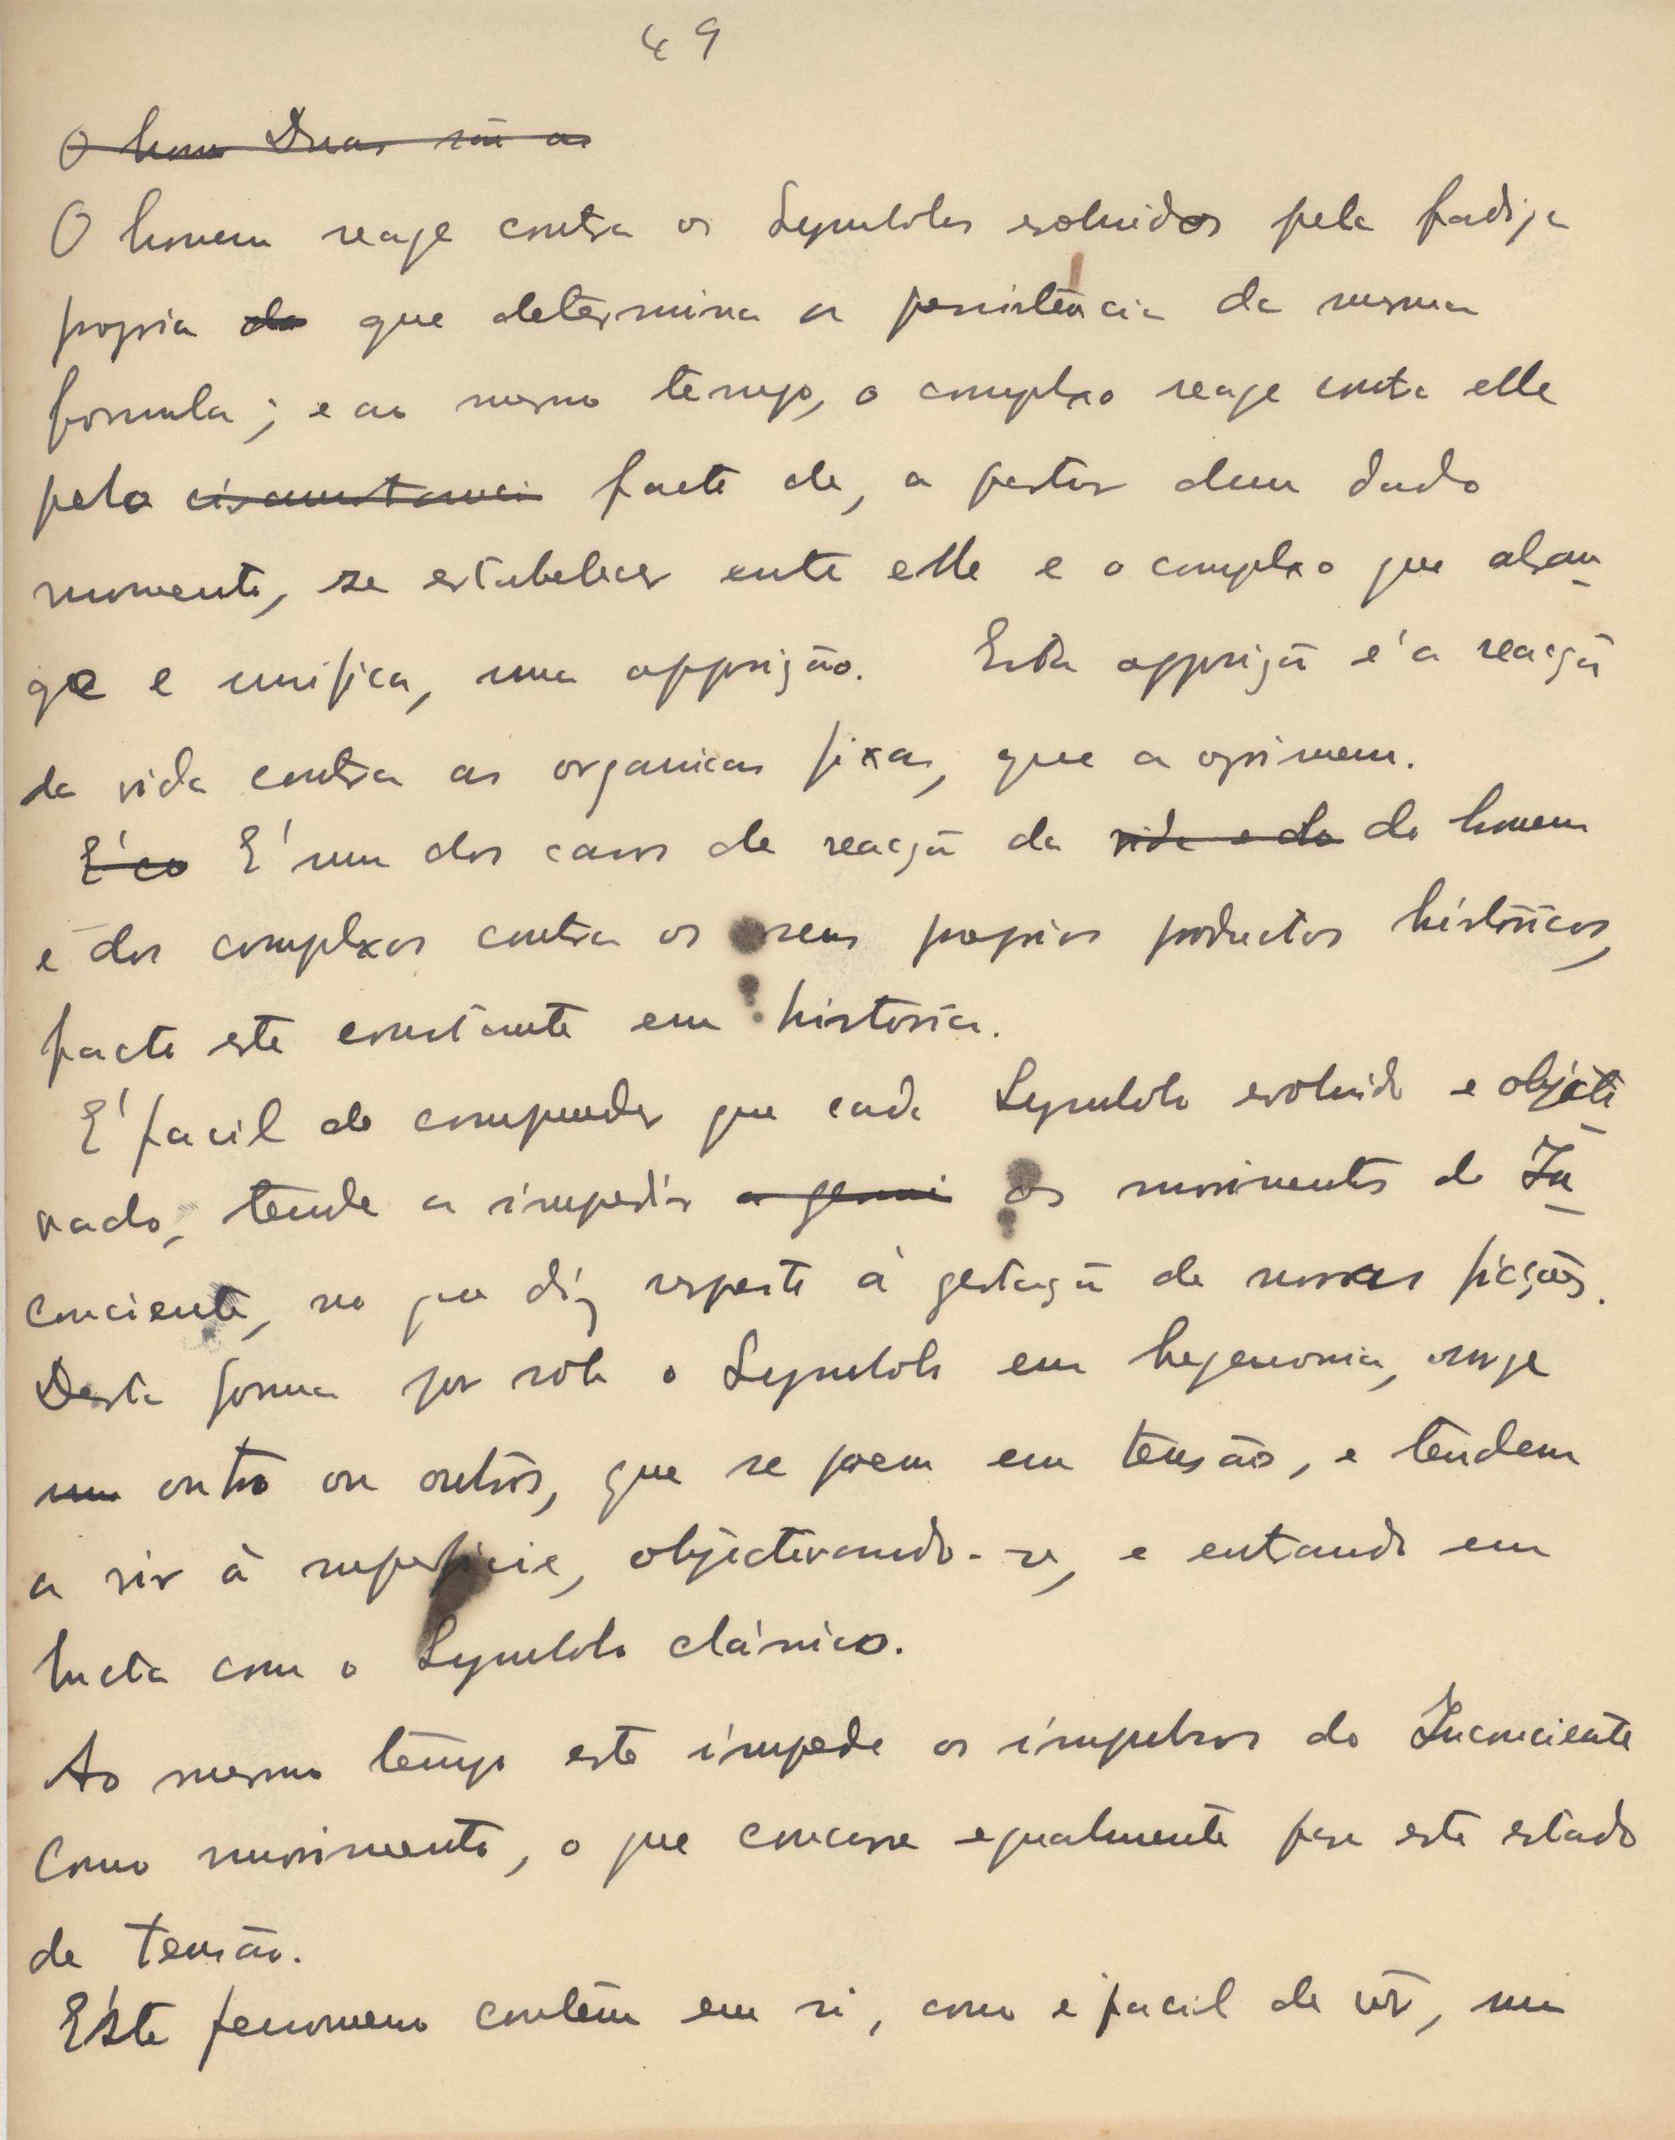 49
O hom Duas são as
O homem reage contra os Symbolos evoluidos pela fadiga
propria do que determina a persistencia da mesma
formula; e ao mesmo tempo, o complexo reage contra elle
pelo circumstanci facto de, a partir dum dado
momento, se estabelecer entre elle e o complexo que abran-
ge e unifica, uma opposição. Esta opposição é a reacção
da vida contra as organicas fixas, que a oprimem.
E' co E' um dos casos de reacção da vida e do do homem
e dos complexos contra os seus proprios productos históricos,
facto este constante em historia.
E' facil de comprender que cada Symbolo evoluido e objecti-
vado, tende a impedir os movimentos do In-
conciente, no que diz respeito á gestação de novas ficções.
Desta forma por sob o Symbolo em hegemonia, surge
um outro ou outros, que se poem em tensão, e tendem
a vir á superficie, objectivando-se, e entrando em
lucta com o Symbolo clássico.
Ao mesmo tempo este impede os impulsos do Inconciente
como movimento, o que concorre egualmente para este estado
de tensão.
Éste fenomeno contêm em si, como é facil de vêr, um